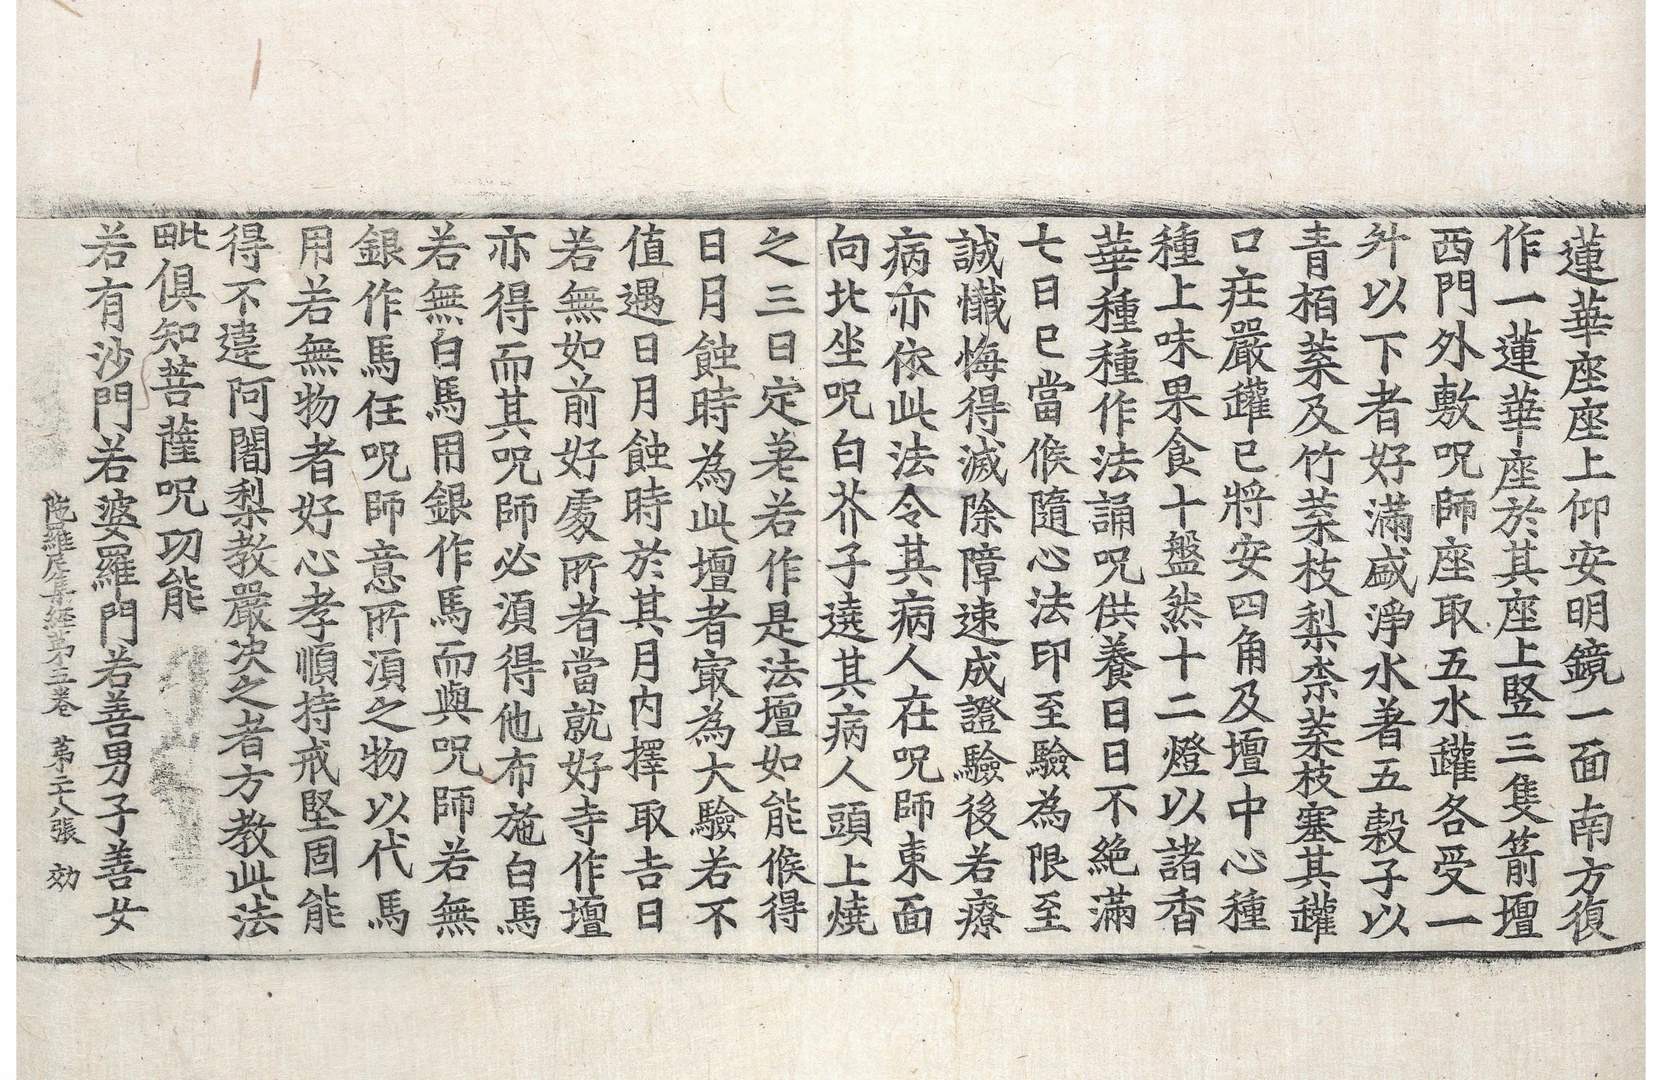 蓮華座座上仰安明鏡一面南方復
作一蓮華座於其座上竪三隻箭壇
西門外敷呪師座取五水罐各受一
升以下者好滿盛淨水著五穀子以
青栢葉及竹葉枝梨柰葉枝塞其罐
口莊嚴罐已將安四角及壇中心種
種上味果食十盤然十二燈以諸香
華種種作法誦呪供養日日不絶滿
七日已當候隨心法印至驗為限至
誠懺悔得滅除障速成證驗後若療
病亦依此法令其病人在呪師東面
向北坐呪白芥子遶其病人頭上燒
之三日定差若作是法壇如能候得
日月蝕時為此壇者㝡為大驗若不
值遇日月蝕時於其月内擇取吉日
若無如前好處所者當就好寺作壇
亦得而其呪師必湏得他布施白馬
若無白馬用銀作馬而與呪師若無
銀作馬任呪師意所湏之物以代馬
用若無物者好心孝順持戒堅固能
得不違阿闍梨教嚴决之者方教此法
毗俱知菩薩呪功能
若有沙門若婆羅門若善男子善女
陁羅尼集經第五卷 第二十八張 効